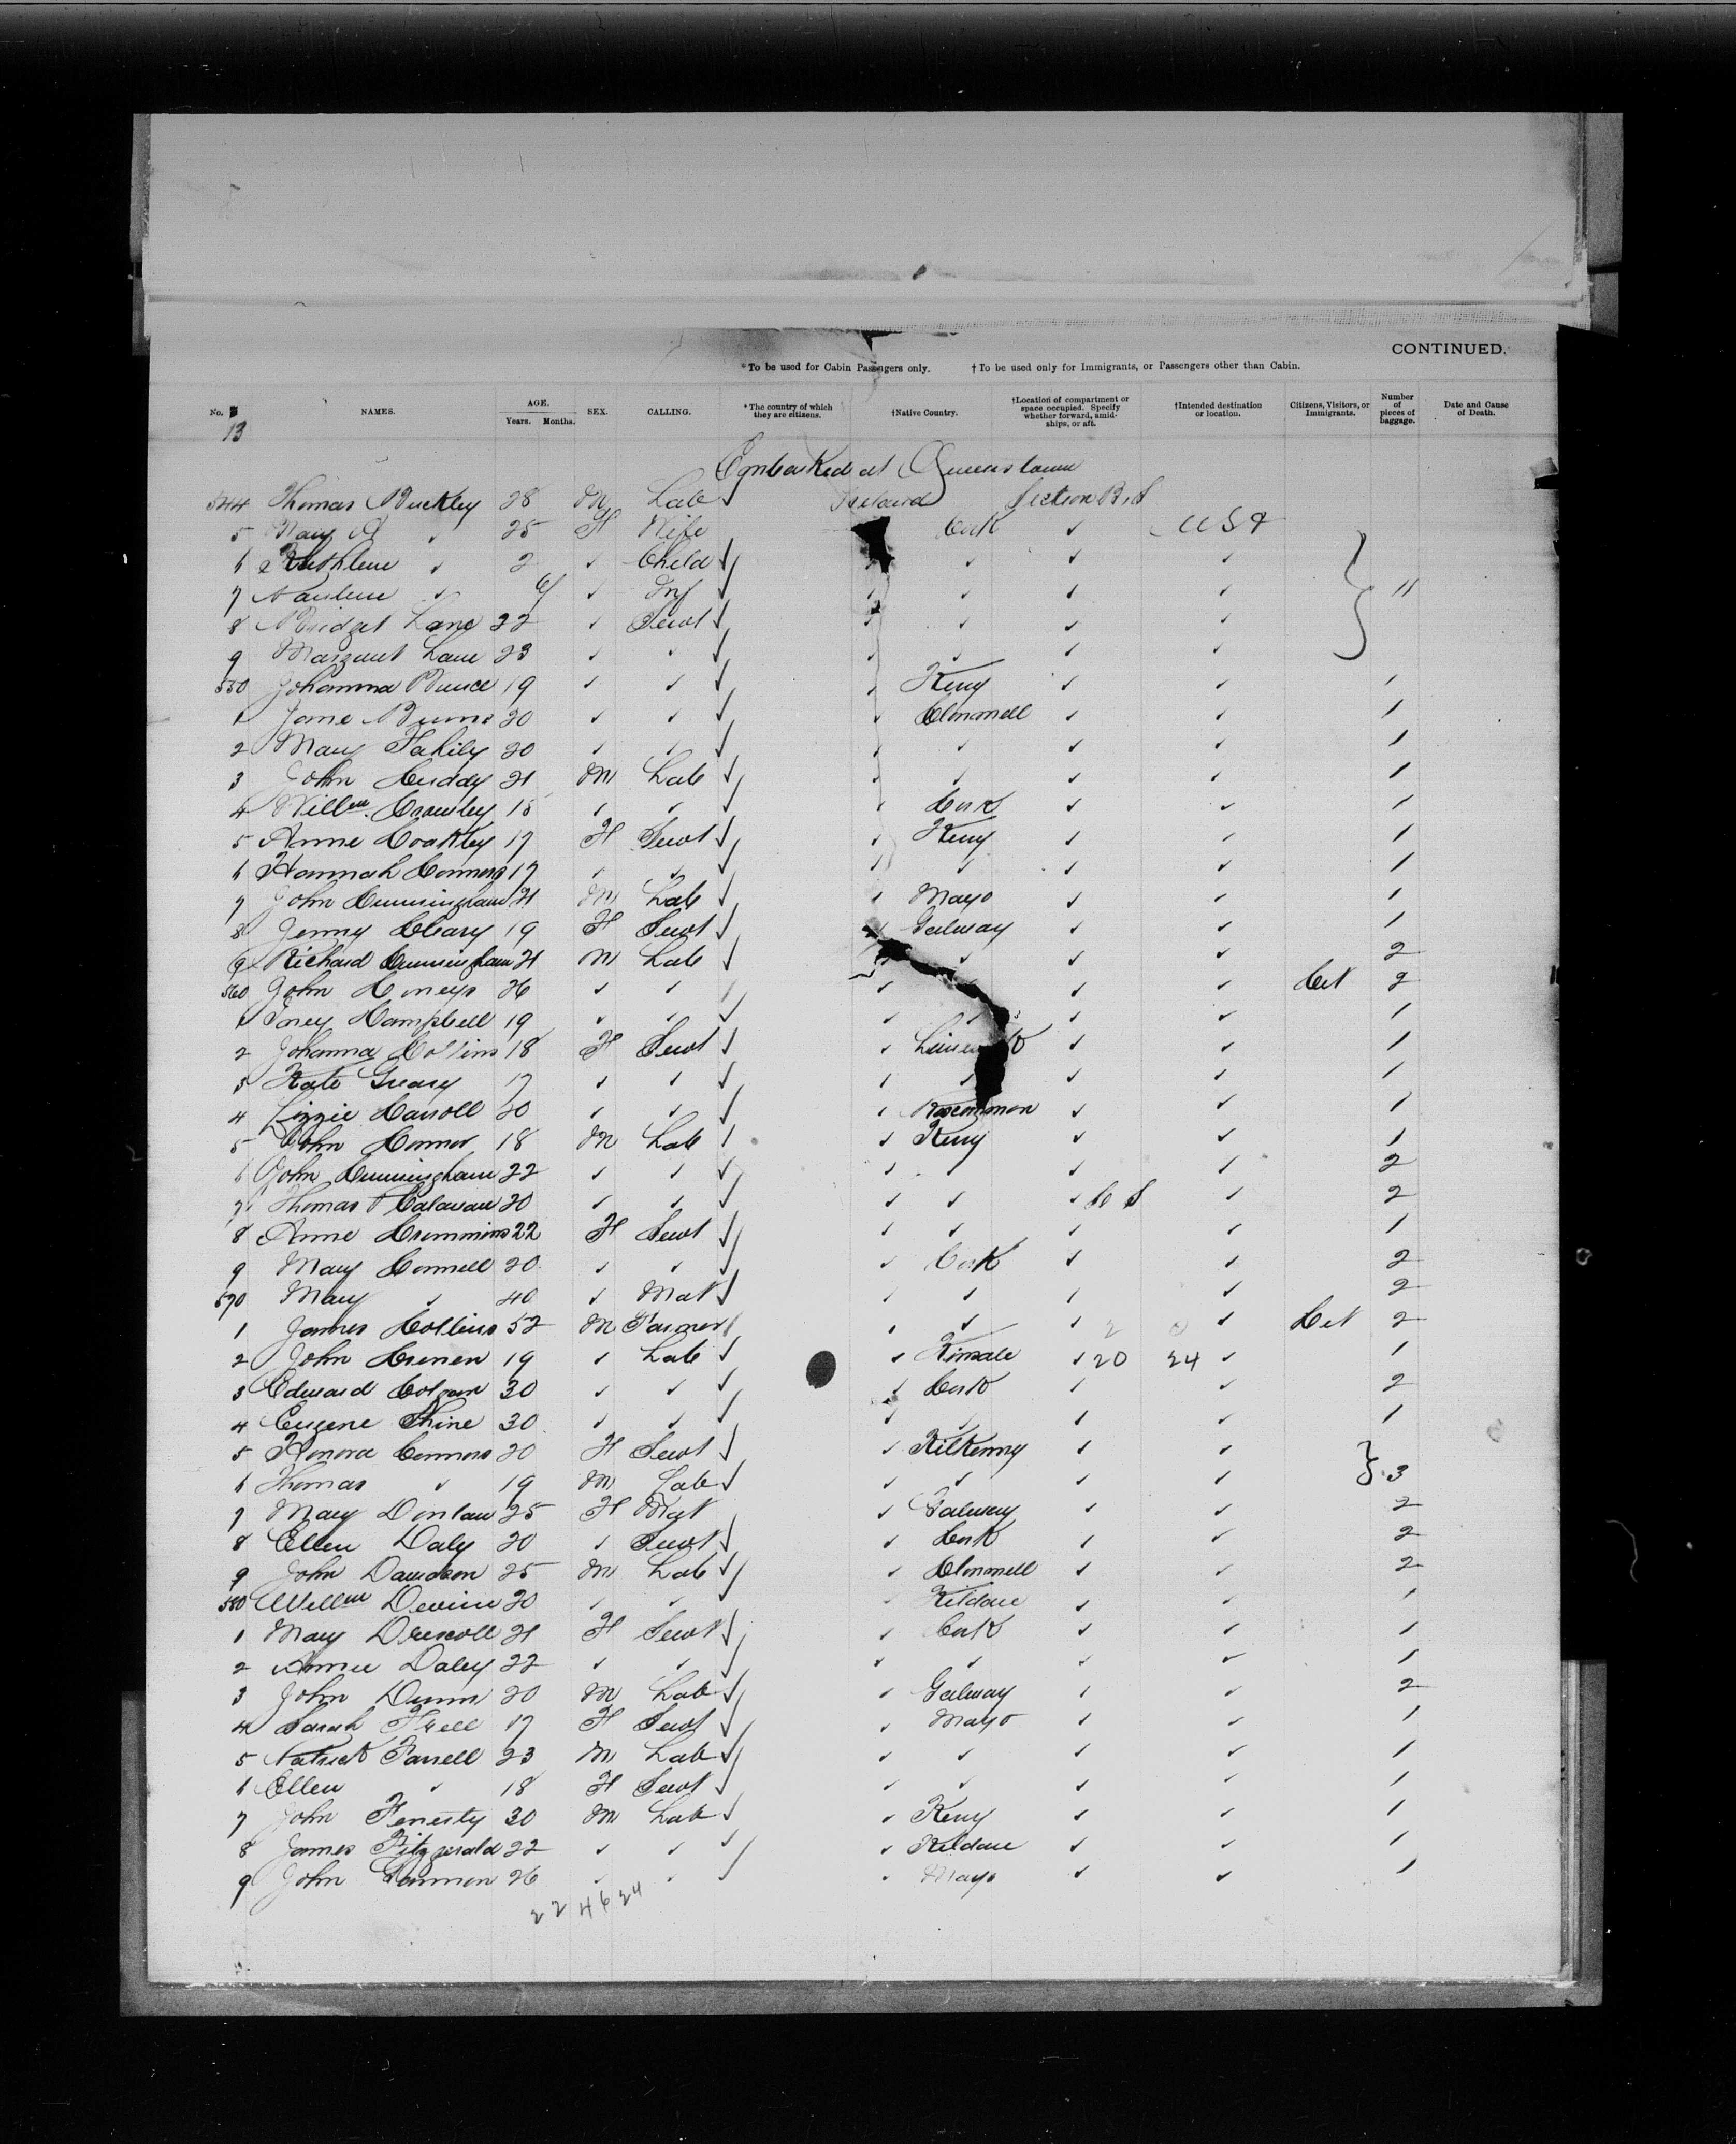 CONTINUED.
*To be used for Cabin Passengers only. †To be used only for Immigrants, or Passengers other than Cabin.
No. NAMES. AGE. Years. Months. SEX. CALLING. *The country of which they are citizens. †Native Country. †Location of compartment or space occupied. Specify whether forward, amidships, or aft. †Intended destination or location. Citizens, Visitors, or Immigrants. Number of pieces of baggage. Date and Cause of Death.
13
Embarked at Queenstown
544 Thomas Buckley 28 M Lab ✓ Ireland Section
5 Mary ✓ 25 F Wife Cork ✓ USA
6 ✓ 2 ✓ Child ✓ ✓ ✓ ✓
7 ✓ 6/ ✓ Inf ✓ ✓ ✓ ✓ ✓ } 11
8 Bridget Lane 22 ✓ Sevt ✓ ✓ ✓ ✓ ✓
9 Margaret Lane 23 ✓ ✓ ✓ ✓ ✓ ✓ ✓
550 Johanna 19 ✓ ✓ ✓ ✓ Kerry ✓ ✓ 1
1 Jane Burns 20 ✓ ✓ ✓ ✓ Clonmell ✓ ✓ 1
2 Mary Fahily 20 ✓ ✓ ✓ ✓ ✓ ✓ ✓ 1
3 John Cuddy 21 M Lab ✓ ✓ ✓ ✓ ✓ 1
4 Willm. Crowley 18 ✓ ✓ ✓ ✓ Cork ✓ ✓ 1
5 Anne Coakley 17 F Sevt ✓ ✓ Kerry ✓ ✓ 1
6 Hannah Connors 17 ✓ ✓ ✓ ✓ ✓ ✓ ✓ 1
7 John Cunningham 21 M Lab ✓ ✓ Mayo ✓ ✓ 1
8 Jenny Cleary 19 F Sevt ✓ ✓ Galway ✓ ✓ 1
9 Richard Cunningham 21 M Lab ✓ ✓ ✓ ✓ 2
560 John 26 ✓ ✓ ✓ ✓ ✓ ✓ Cit 2
1 Campbell 19 ✓ ✓ ✓ ✓ ✓ ✓ ✓ 1
2 Johanna Collins 18 F Sevt ✓ ✓ ✓ ✓ 1
3 Kate 17 ✓ ✓ ✓ ✓ ✓ ✓ ✓ 1
4 Lizzie Carroll 20 ✓ ✓ ✓ ✓ Roscommon ✓ ✓ 1
5 John Connor 18 M Lab ✓ ✓ Kerry ✓ ✓ 1
6 John Cunningham 22 ✓ ✓ ✓ ✓ ✓ ✓ ✓ 2
7 Thomas 20 ✓ ✓ ✓ ✓ ✓ ✓ ✓ 2
8 Anne Crimmins 22 F Sevt ✓ ✓ ✓ ✓ ✓ 1
9 Mary Connell 20 ✓ ✓ ✓ ✓ Cork ✓ ✓ 2
570 Mary ✓ 40 ✓ Mat ✓ ✓ ✓ ✓ ✓ 2
1 James Collins 52 M Farmer ✓ ✓ ✓ ✓ ✓ Cit 2
2 John Crenen 19 ✓ Lab ✓ ✓ Kinsale ✓ 20 24 ✓ 1
3 Edward 30 ✓ ✓ ✓ ✓ Cork ✓ ✓ 2
4 Eugene Shine 30 ✓ ✓ ✓ ✓ ✓ ✓ ✓ 1
5 Honora Connors 20 F Sevt ✓ ✓ Kilkenny ✓ ✓
6 Thomas ✓ 19 M Lab ✓ ✓ ✓ ✓ ✓ } 3
7 Mary Donlan 25 F Mat ✓ Galway ✓ ✓ 2
8 Ellen Daly 20 ✓ Sevt ✓ ✓ Cork ✓ ✓ 2
9 John Davidson 25 M Lab ✓ ✓ Clonmell ✓ ✓ 2
580 Willm Devine 20 ✓ ✓ ✓ ✓ Kildare ✓ ✓ 1
1 Mary Driscoll 21 F Sevt ✓ ✓ Cork ✓ ✓ 1
2 Annie Daley 22 ✓ ✓ ✓ ✓ ✓ ✓ ✓ 1
3 John Dunn 20 M Lab ✓ ✓ Galway ✓ ✓ 2
4 Sarah 17 F Sevt ✓ ✓ Mayo ✓ ✓ 1
5 Patrick Farrell 23 M Lab ✓ ✓ ✓ ✓ ✓ 1
6 Ellen ✓ 18 F Sevt ✓ ✓ ✓ ✓ ✓ 1
7 John 30 M Lab ✓ ✓ Kerry ✓ ✓ 1
8 James Fitzgerald 22 ✓ ✓ ✓ ✓ Kildare ✓ ✓ 1
9 John 26 ✓ ✓ ✓ ✓ Mayo ✓ ✓ 1
22 46 24